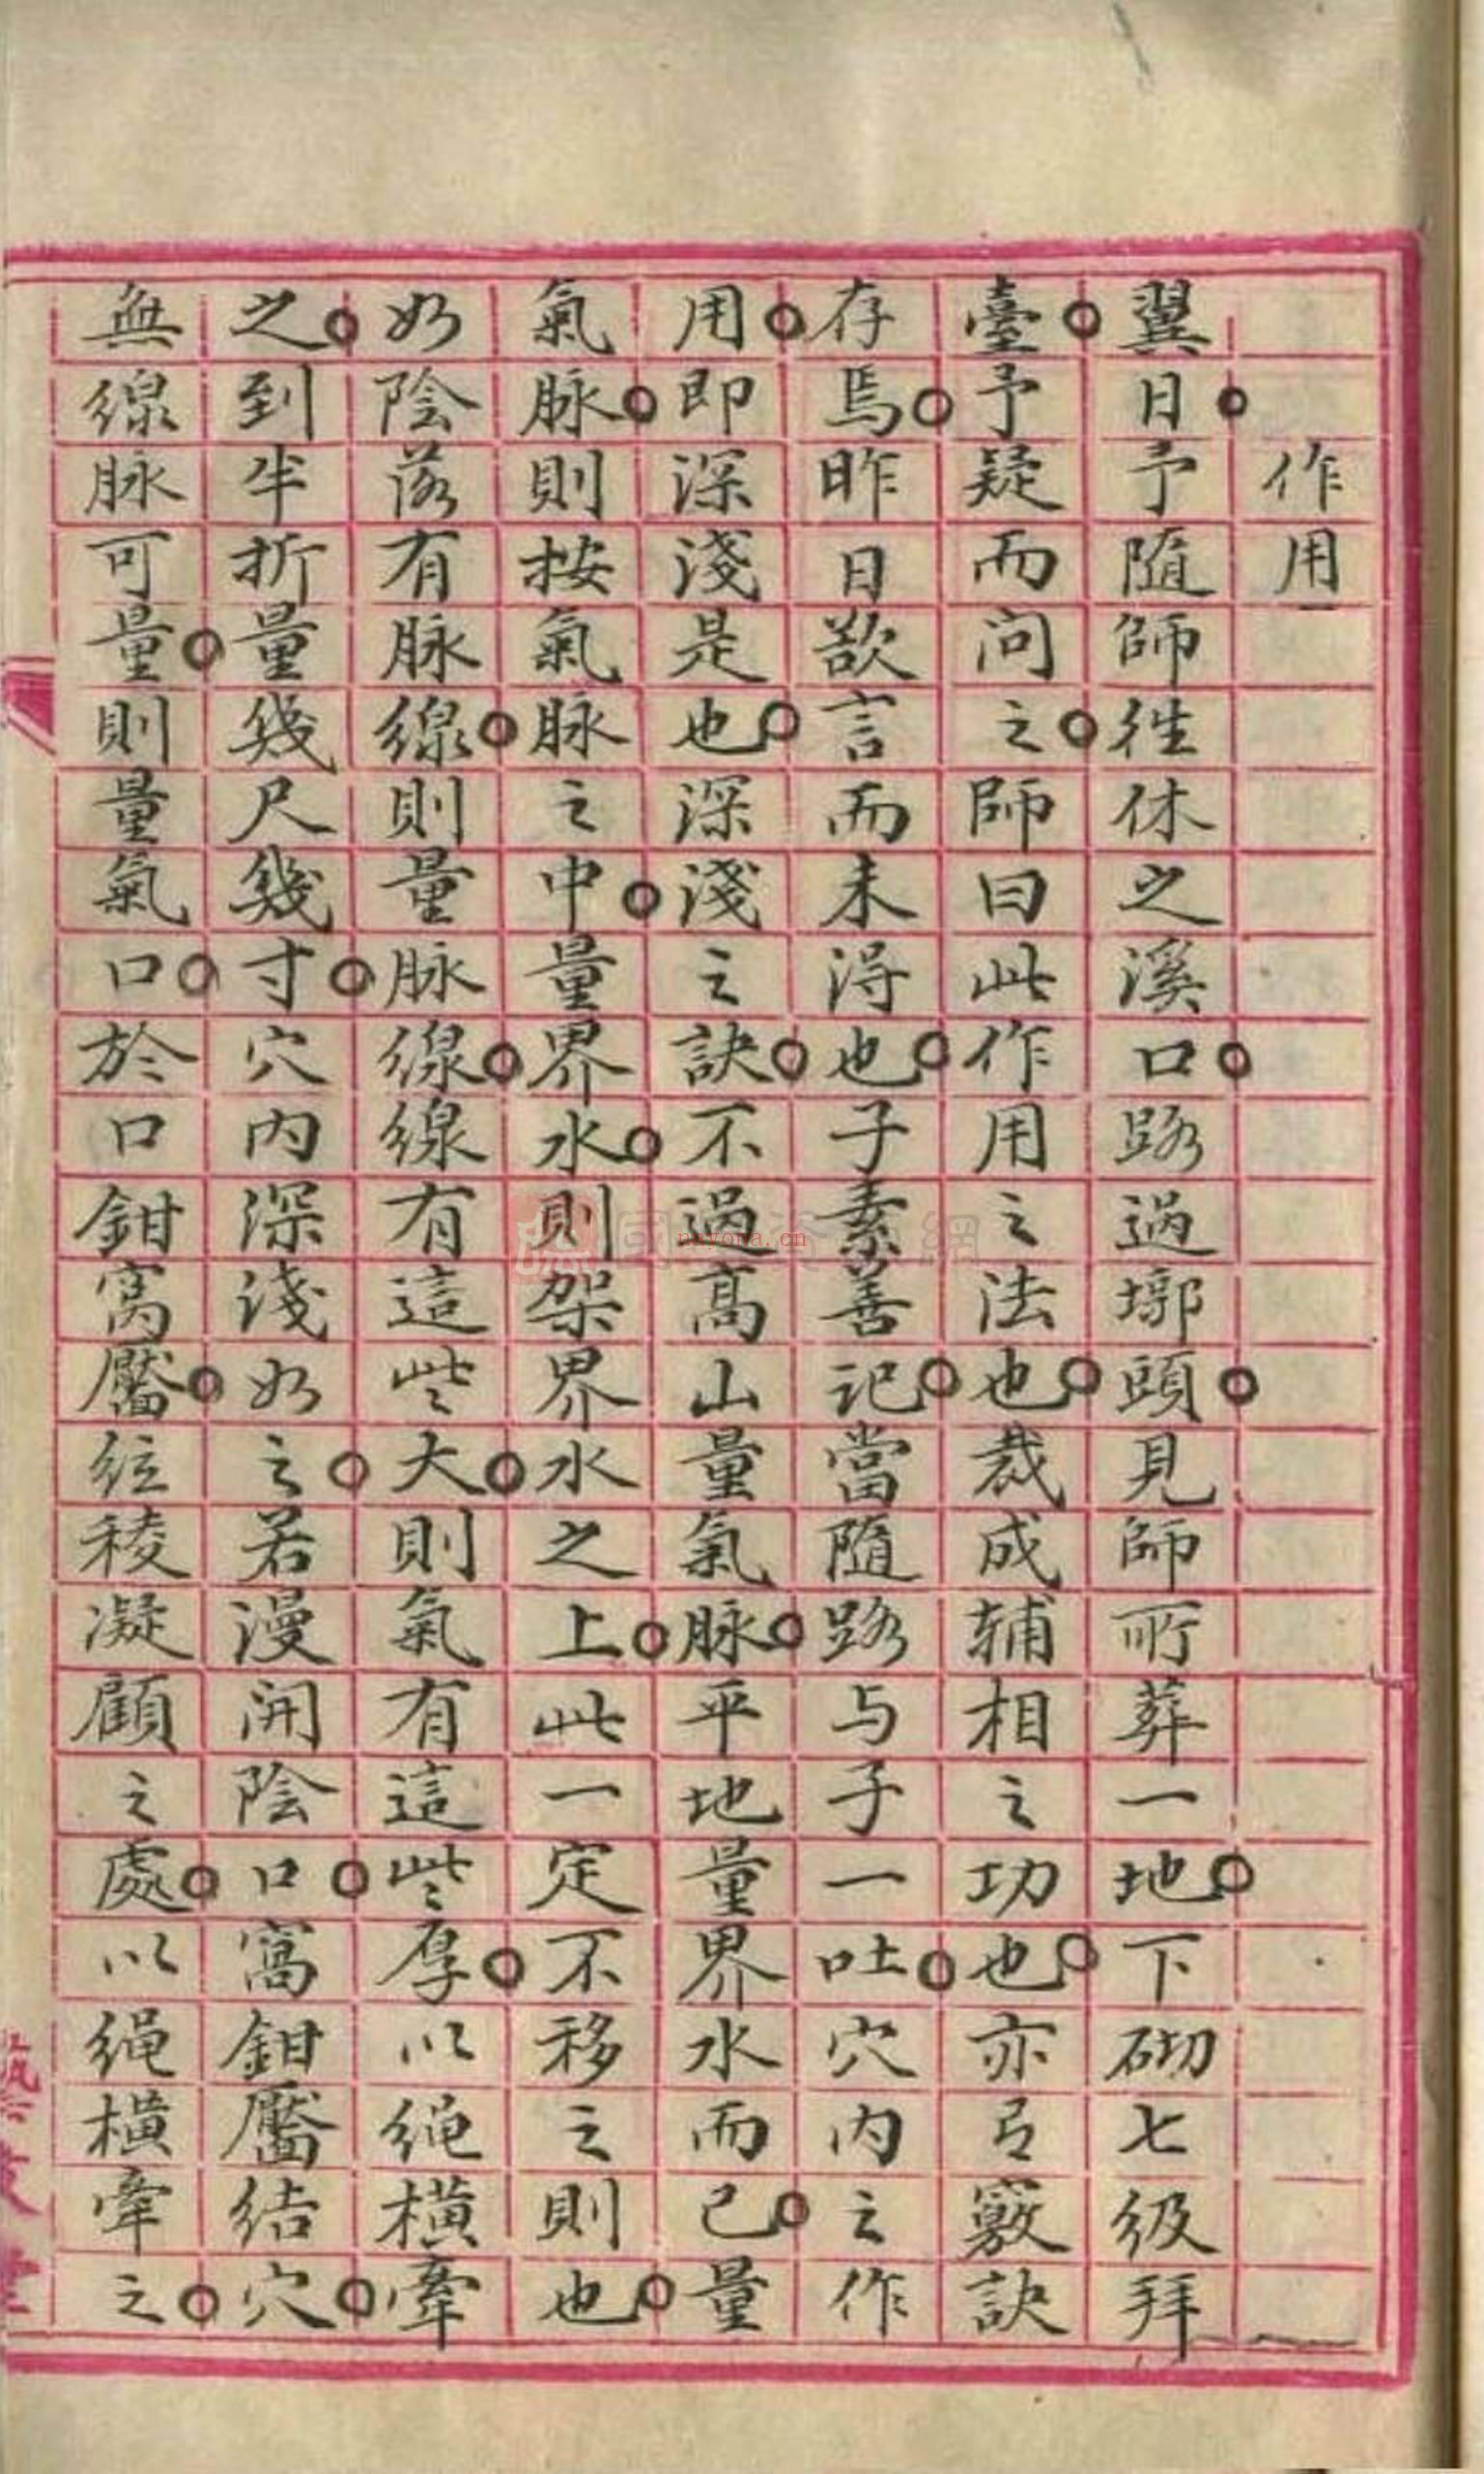 作用
翼日予隨師往休之溪口路過墎頭見師所葬一地下砌七级拜
臺予疑而问之師曰此作用之法也裁成辅相之功也亦有竅訣
存焉昨日欲言而未淂也子素善记當隨路与子一吐穴内之作
用即深淺是也深淺之訣不過髙山量氣脉平地量界水而已量
氣脉則按氣脉之中量界水則架界水之上此一定不移之則也
如陰落有脉線則量脉線線有這些大則氣有這些厚以绳横牽
之到半折量幾尺幾寸穴内深淺如之若漫开陰口窩鉗靨结穴
無線脉可量則量氣口於口鉗窩靨弦稜凝顧之處以绳横牽之
nuyoua.cn